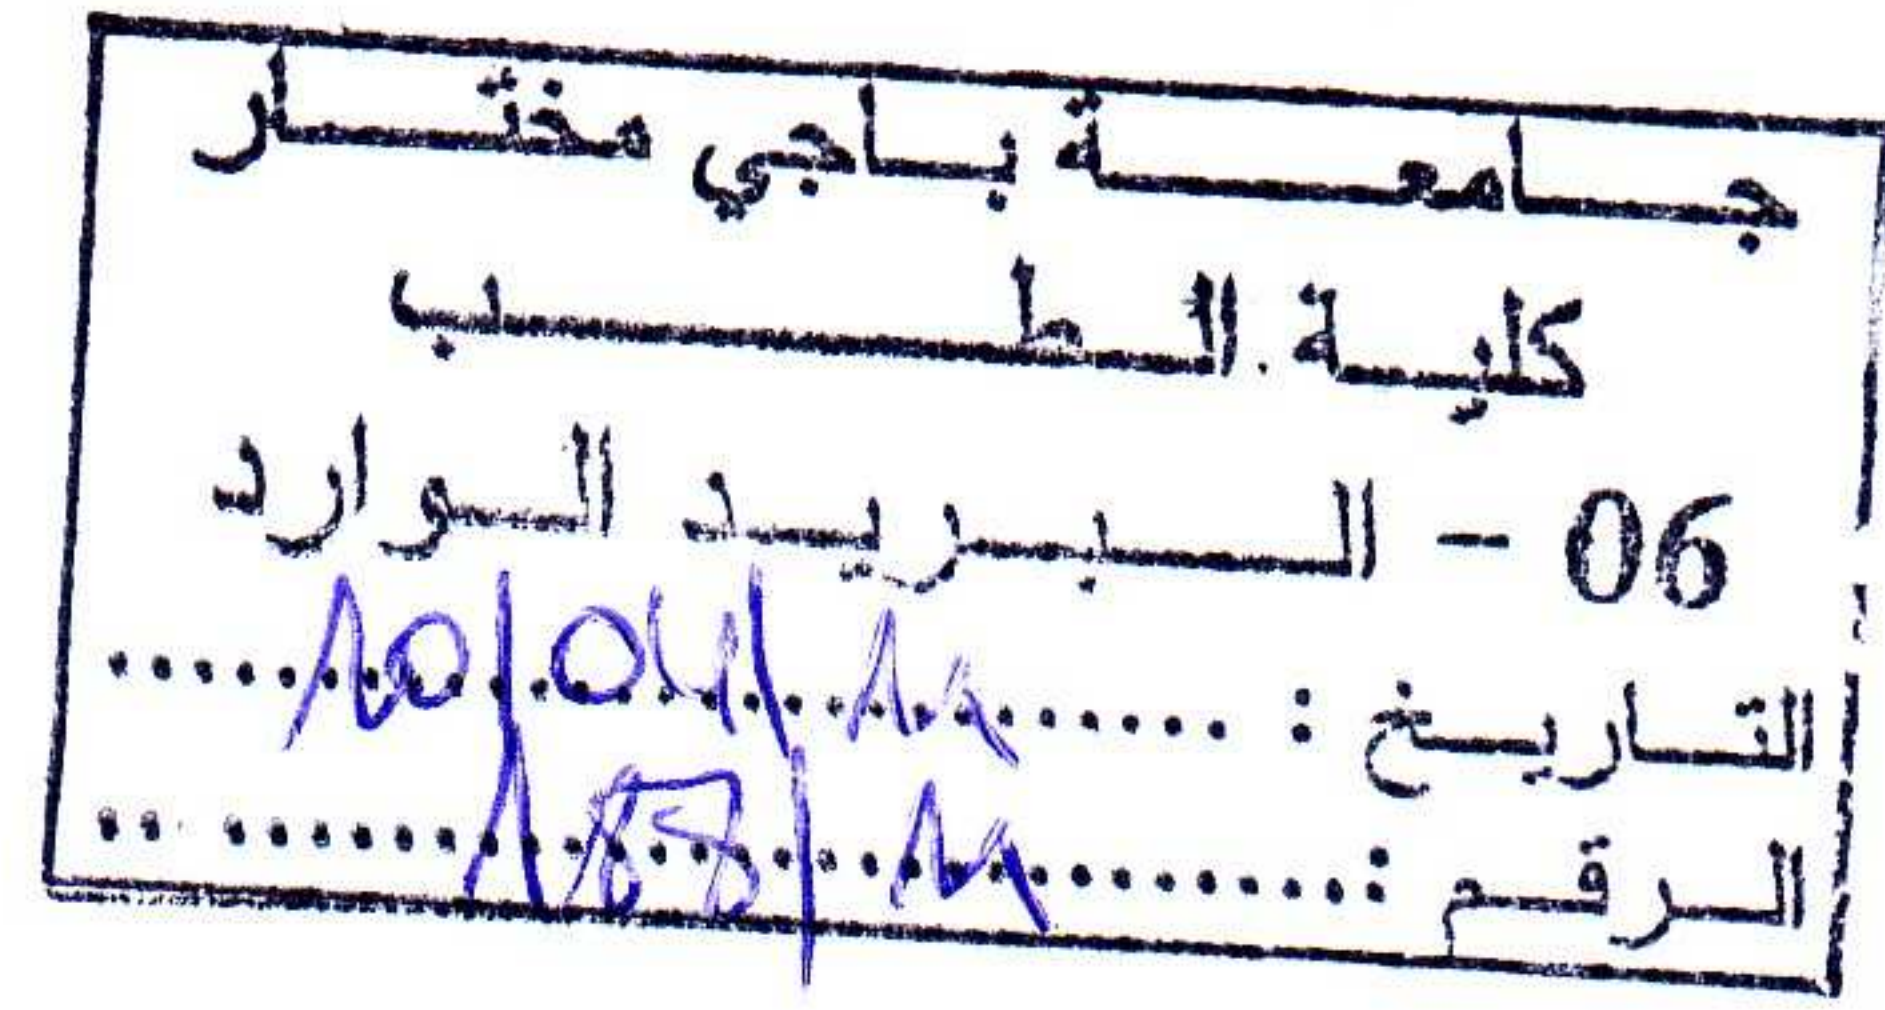 جامعة باجي مختار
كلية الطب
06 - البريد الوارد
التاريخ : 10/04/11
الرقم :